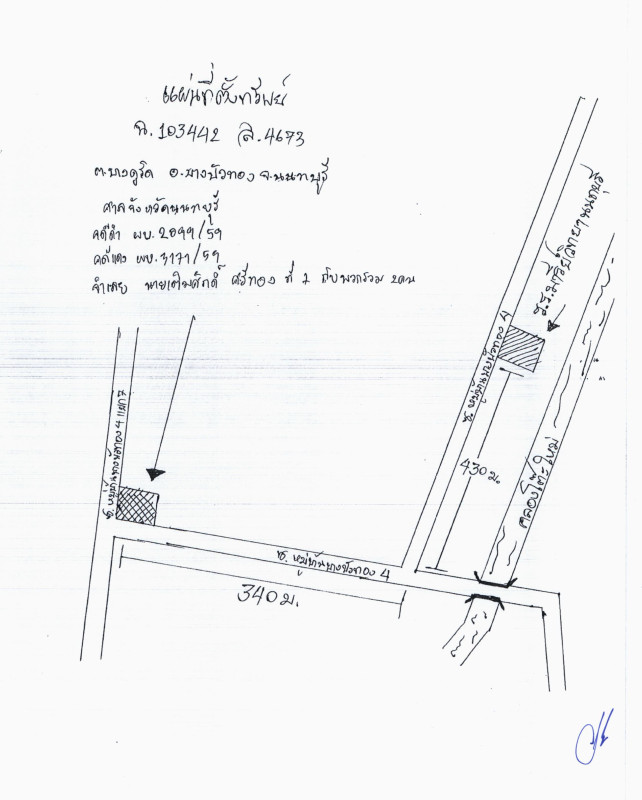 แผนที่ตั้งทรัพย์
ฉ.103442 ล.4673
ต.บางคูรัด อ.บางบัวทอง จ.นนทบุรี
ศาลจังหวัดนนทบุรี
คดีดำ ผบ.2099/59
คดีแดง ผบ.3171/59
จำเลย ศรีทอง ที่ 1 กับพวกรวม 2คน
ร.ร.มารีย์วิทยานนทบุรี
430 ม.
คลองโต๊ะใหม่
ซ.หมู่บ้านบางบัวทอง 4 แยก 7
ซ.หมู่บ้านบางบัวทอง 4
340 ม.